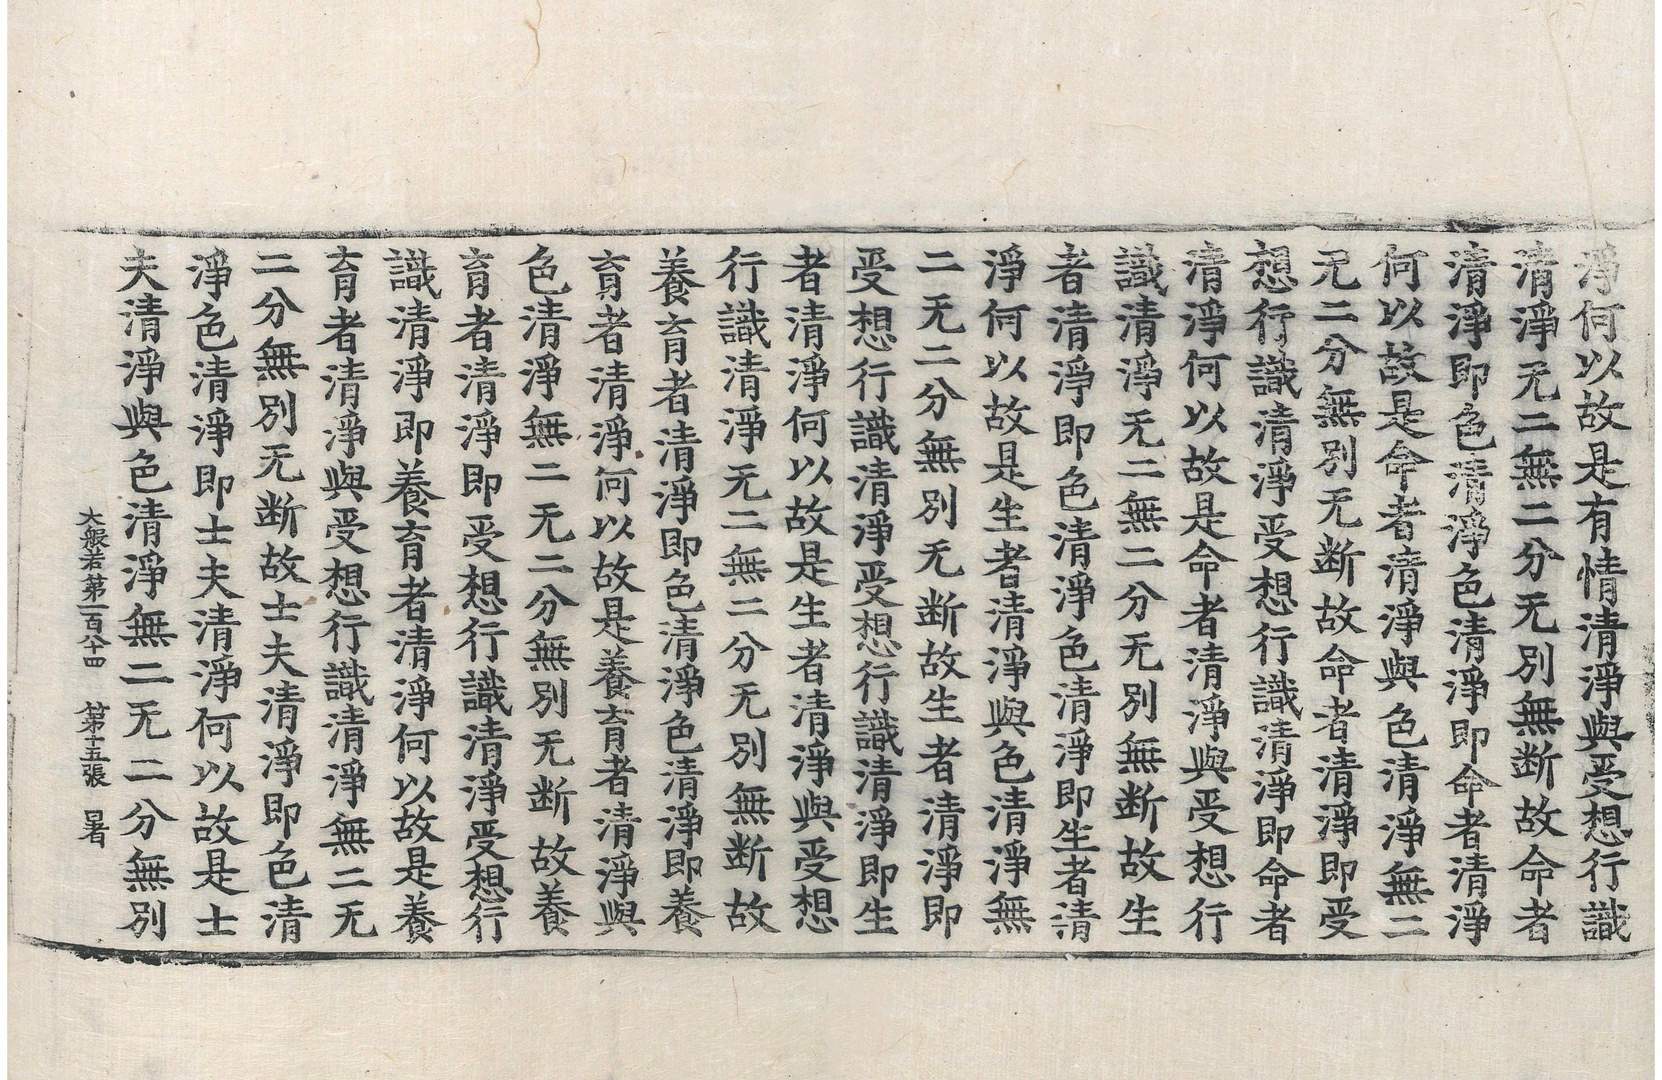 淨何以故是有情清淨與受想行識
清淨无二無二分无別無断故命者
清淨即色清淨色清淨即命者清淨
何以故是命者清淨與色清淨無二
无二分無別无断故命者清淨即受
想行識清淨受想行識清淨即命者
清淨何以故是命者清淨與受想行
識清淨无二無二分无別無断故生
者清淨即色清淨色清淨即生者清
淨何以故是生者清淨與色清淨無
二无二分無別无断故生者清淨即
受想行識清淨受想行識清淨即生
者清淨何以故是生者清淨與受想
行識清淨无二無二分无別無断故
養育者清淨即色清淨色清淨即養
育者清淨何以故是養育者清淨與
色清淨無二无二分無別无断故養
育者清淨即受想行識清淨受想行
識清淨即養育者清淨何以故是養
育者清淨與受想行識清淨無二无
二分無別无断故士夫清淨即色清
淨色清淨即士夫清淨何以故是士
夫清淨與色清淨無二无二分無別
大般若第一百八十四 第十五張 署